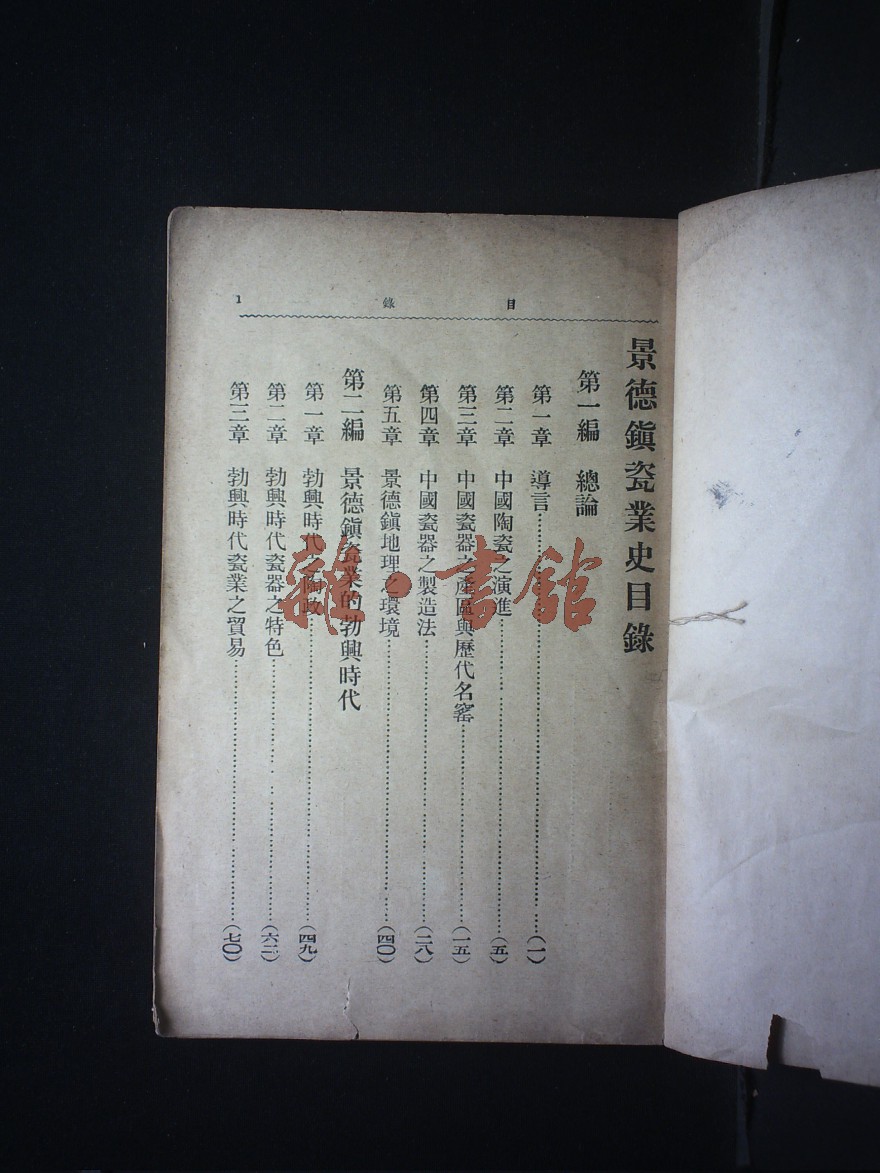 目錄
1
景德鎭瓷業史目錄
第一編 總論
第一章 導言…………(一)
第二章 中國陶瓷之演進…………(五)
第三章 中國瓷器之產區與歷代名窰…………(一五)
第四章 中國瓷器之製造法…………(二八)
第五章 景德鎭地理之環境…………(四〇)
第二編 景德鎭瓷業的勃興時代
第一章 勃興時代之陶政…………(四九)
第二章 勃興時代瓷器之特色…………(六二)
第三章 勃興時代瓷業之貿易…………(七〇)
雜·書館